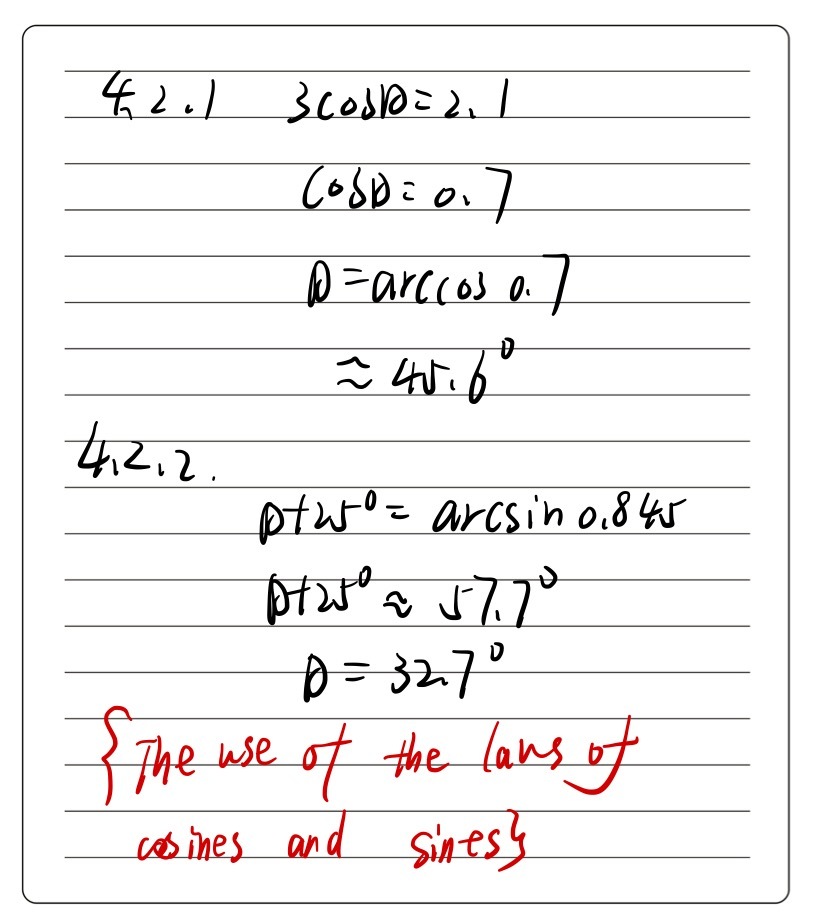 4.2.1 3cosθ=2.1
cosθ=0.7
θ=arccos 0.7
≈45.6°
4.2.2.
θ+25°= arcsin 0.845
θ+25°≈ 57.7°
θ= 32.7°
{The use of the laws of
cosines and sines}